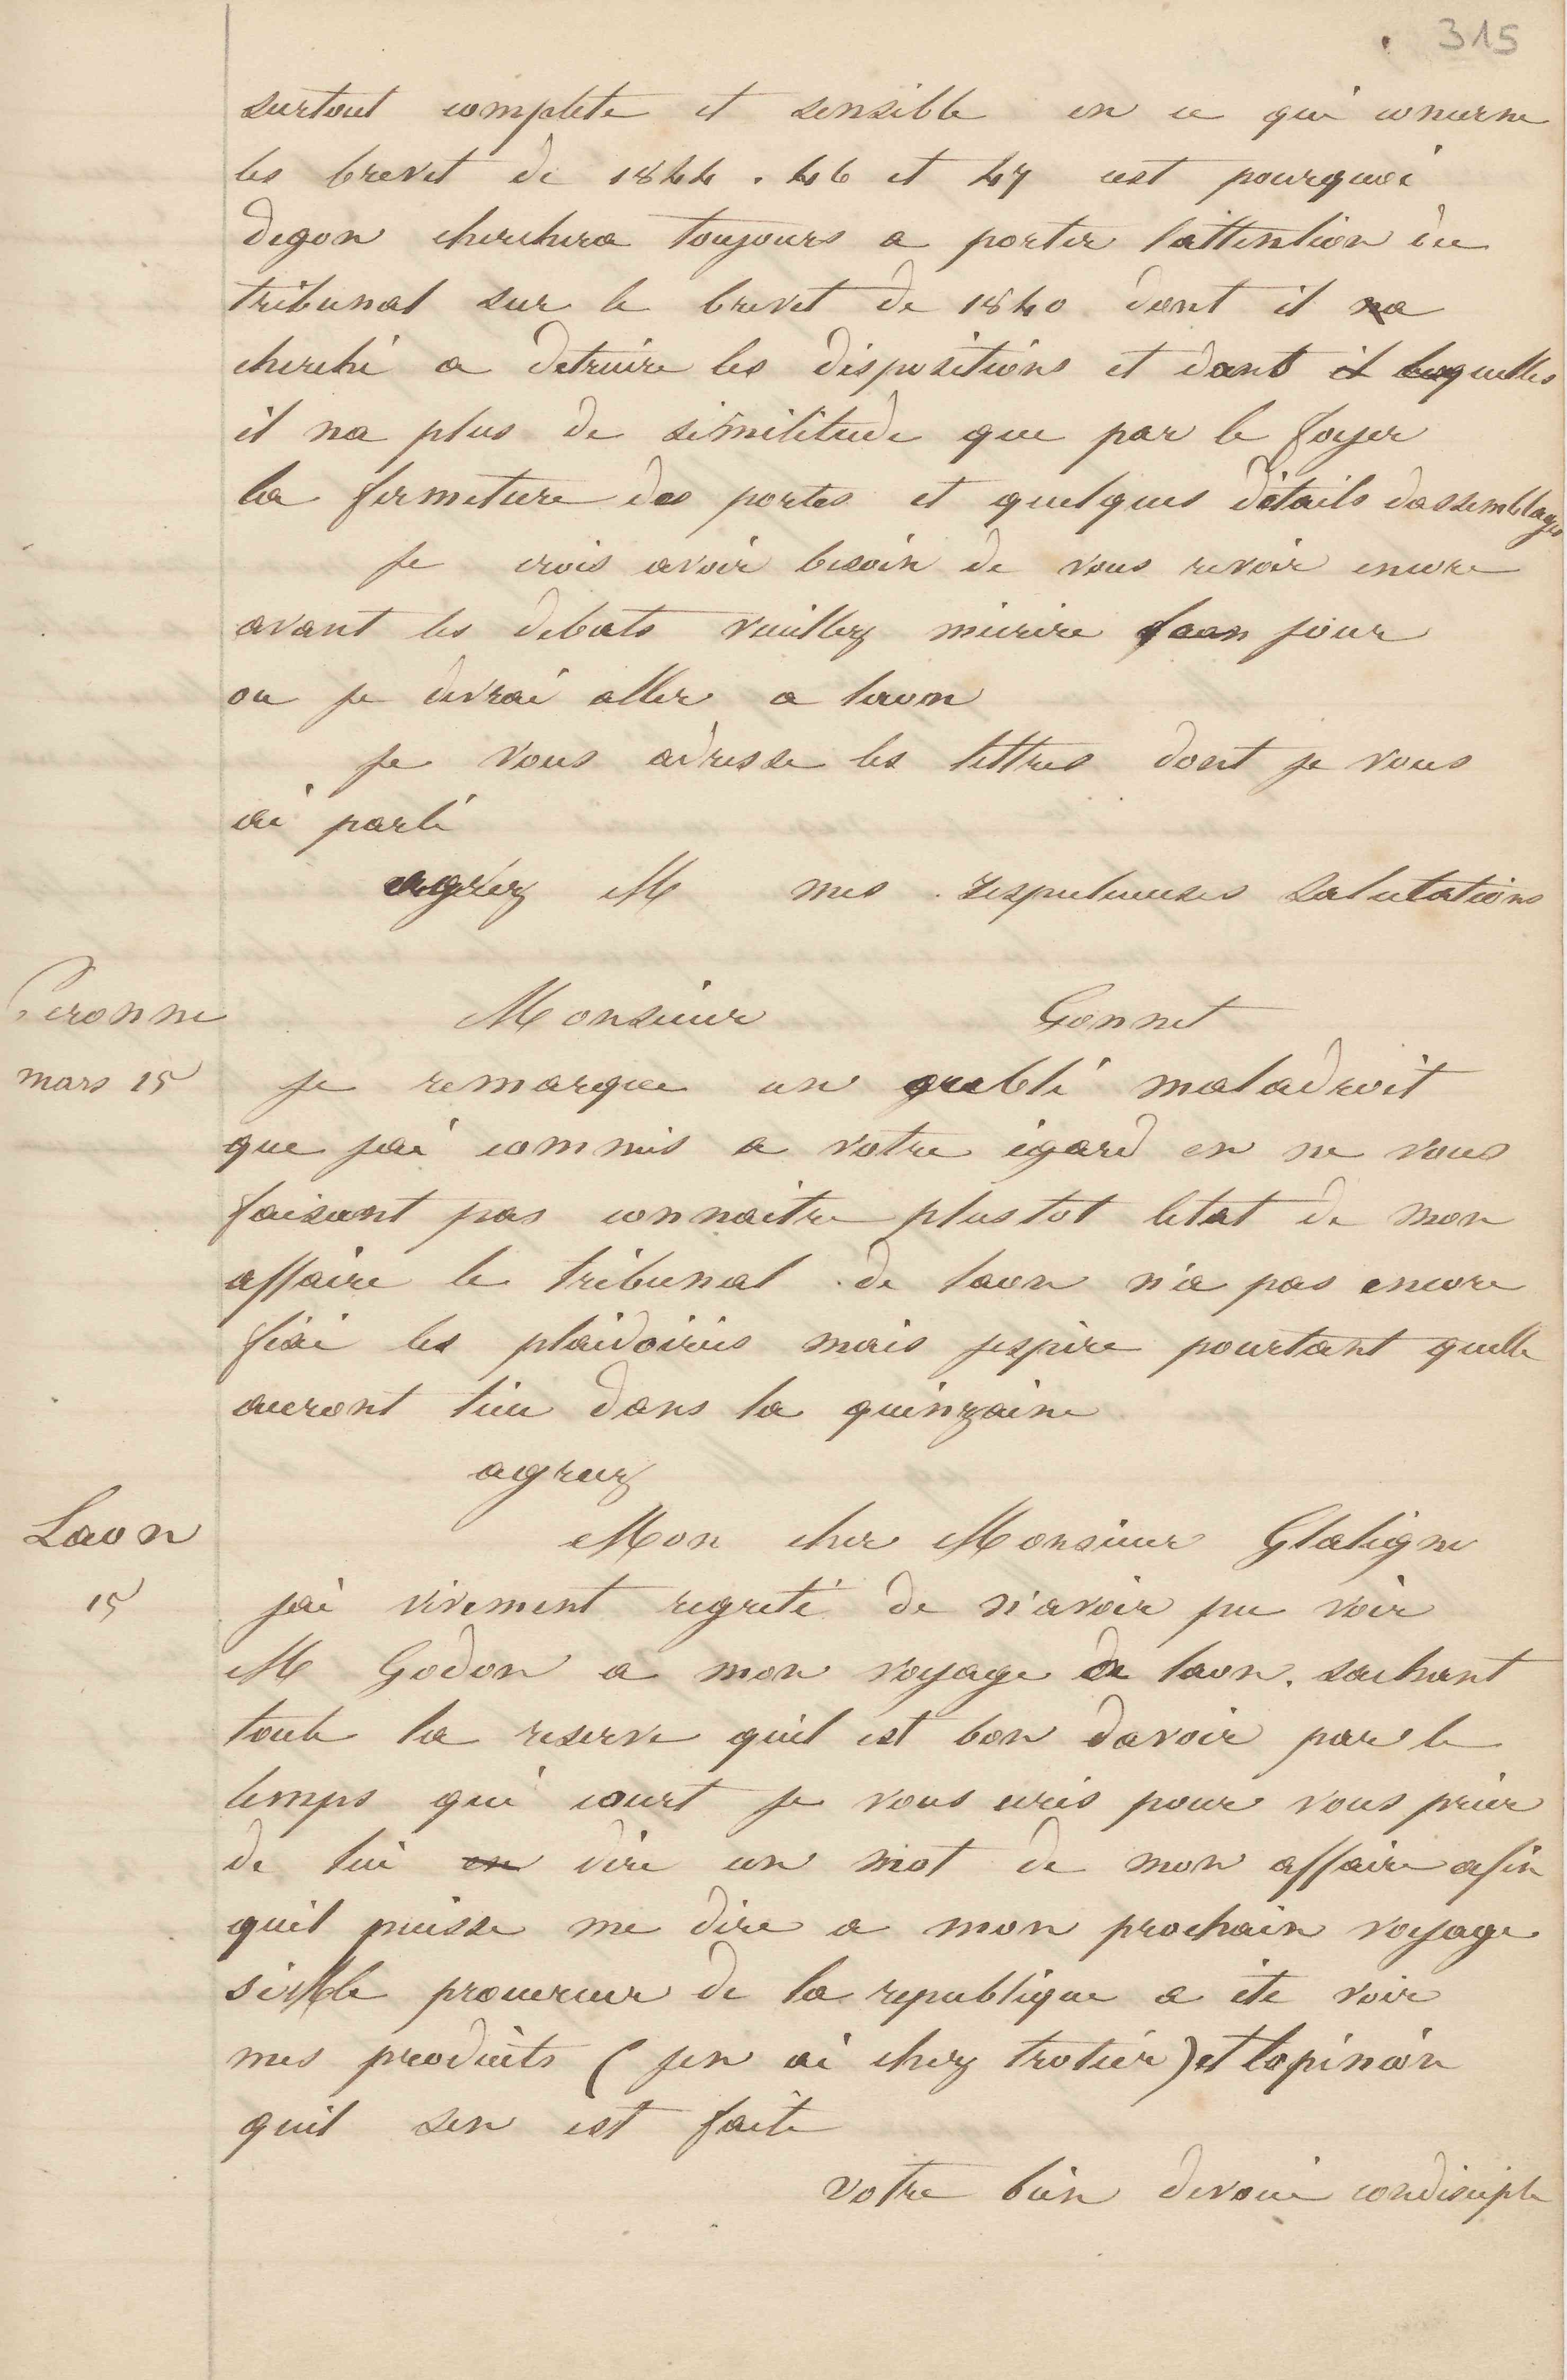 315
surtout complete et sensible en ce qui concerne
les brevet de 1844 . 46 et 47 cest pourquoi
degon cherchera toujours a porter lattention du
tribunal sur le brevet de 1840 dont il na
cherché a detruire les dispositions et dont il lesquelles
il na plus de similitude que par le foyer
la fermeture des portes et quelques détails dassemblages
je crois avoir besoin de vous revoir encore
avant les debats veuillez mécrire jour
ou je devrai aller a laon
je vous adresse les lettres dont je vous
ai parlé
agréez M mes respectueuses salutations
Peronne
Monsieur Gonnet
mars 15
je remarque un oublié maladroit
que jai commis a votre égard en ne vous
faisant pas connaitre plustot letat de mon
affaire le tribunal de laon n'a pas encore
fixé les plaidoiries mais jespère pourtant quelle
auront lieu dans la quinzaine
agreez
Laon
Mon cher Monsieur Glatigne
15
jai vivement regreté de n'avoir pu voir
M Godon a mon voyage de laon. sachant
toute la reserve quil est bon davoir par le
temps qui court je vous ecris pour vous prier
de lui en dire un mot de mon affaire afin
quil puisse me dire a mon prochain voyage
si Mr le procureur de la republique a été voir
mes produits (jen ai chez trotier) et lopinion
quil sen est faite
votre bien devoué condisciple